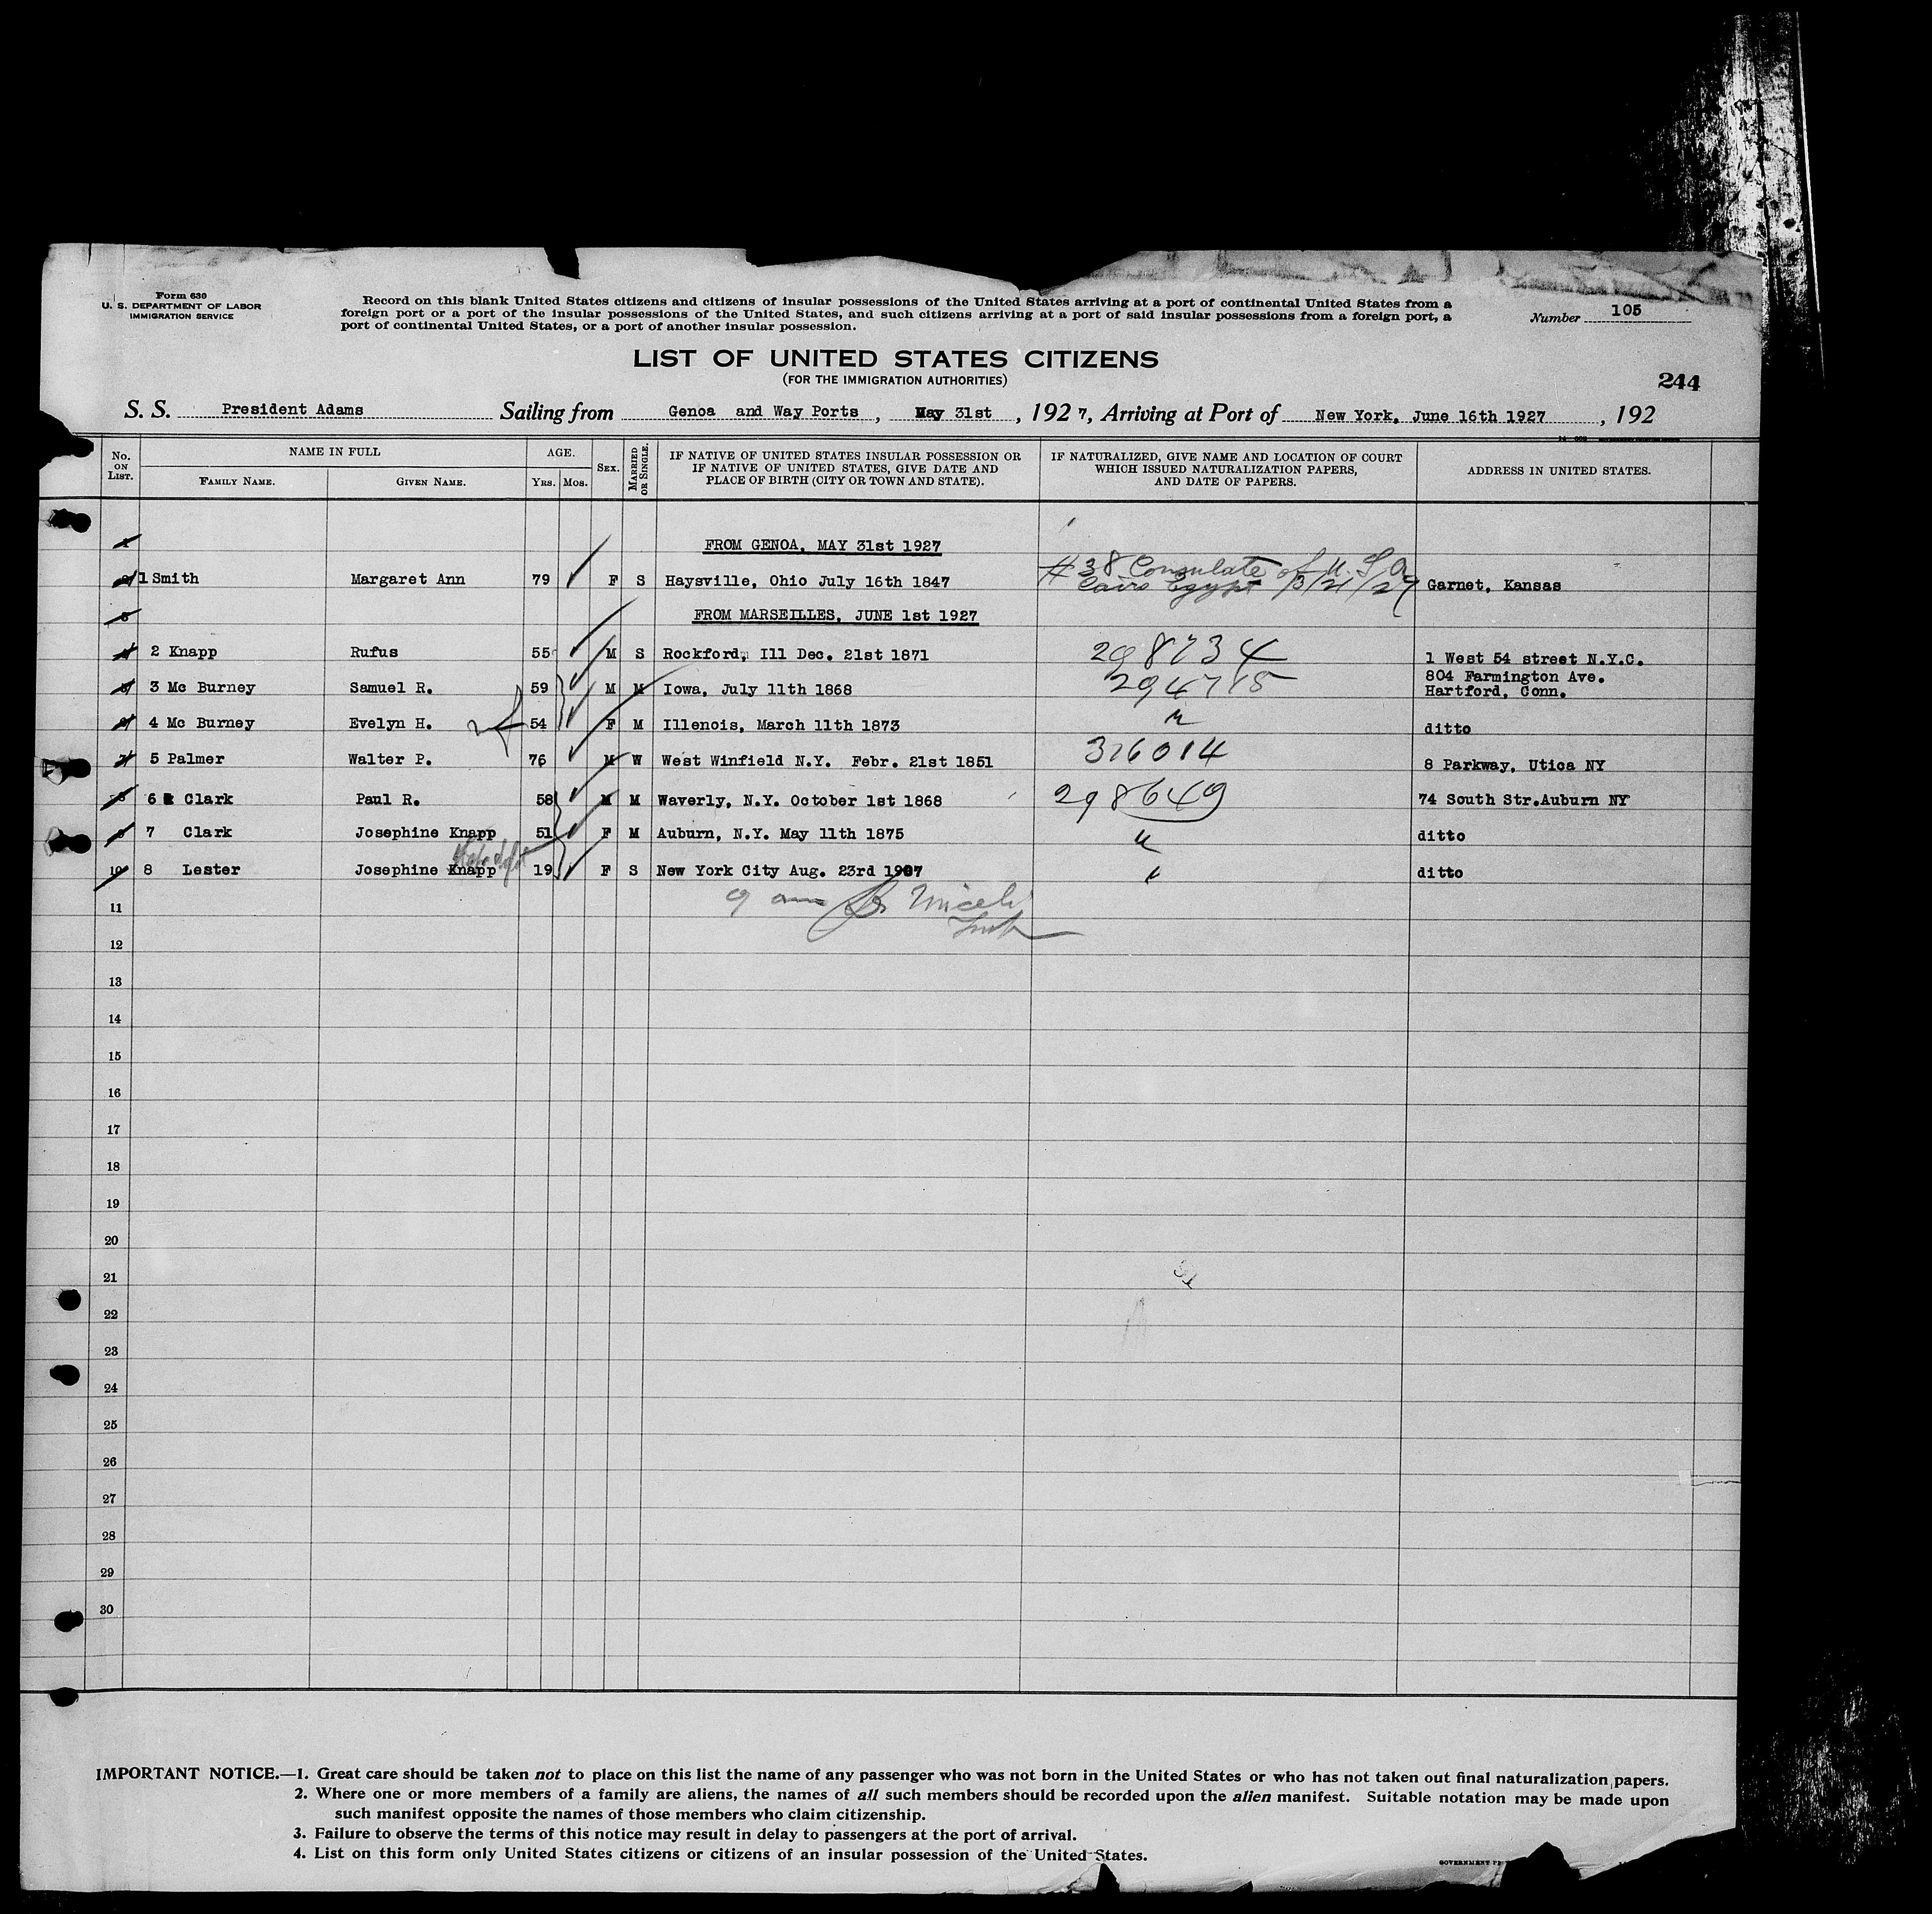 Form 630
U. S. DEPARTMENT OF LABOR
IMMIGRATION SERVICE
Record on this blank United States citizens and citizens of insular possessions of the United States arriving at a port of continental United States from a
foreign port or a port of the insular possessions of the United States, and such citizens arriving at a port of said insular possessions from a foreign port, a
port of continental United States, or a port of another insular possession.
Number 105
LIST OF UNITED STATES CITIZENS
(FOR THE IMMIGRATION AUTHORITIES)
244
S. S. President Adams Sailing from Genoa and Way Ports, May 31st, 1927, Arriving at Port of New York, June 16th 1927, 192
No. ON LIST. NAME IN FULL AGE. SEX. MARRIED OR SINGLE. IF NATIVE OF UNITED STATES INSULAR POSSESSION OR IF NATIVE OF UNITED STATES, GIVE DATE AND PLACE OF BIRTH (CITY OR TOWN AND STATE). IF NATURALIZED, GIVE NAME AND LOCATION OF COURT WHICH ISSUED NATURALIZATION PAPERS, AND DATE OF PAPERS. ADDRESS IN UNITED STATES.
FAMILY NAME. GIVEN NAME. YRS. MOS.
FROM GENOA, MAY 31st 1927
1 Smith Margaret Ann 79 F S Haysville, Ohio July 16th 1847 #38 Consulate of U.S.A. Cairo Egypt 3/21/27 Garnet, Kansas
FROM MARSEILLES, JUNE 1st 1927
2 Knapp Rufus 55 M S Rockford, Ill Dec. 21st 1871 298734 1 West 54 street N.Y.C.
3 Mc Burney Samuel R. 59 M M Iowa, July 11th 1868 294715 804 Farmington Ave. Hartford, Conn.
4 Mc Burney Evelyn H. 54 F M Illenois, March 11th 1873 " ditto
5 Palmer Walter P. 76 M W West Winfield N.Y. Febr. 21st 1851 316014 8 Parkway, Utica NY
6 Clark Paul R. 58 M M Waverly, N.Y. October 1st 1868 298649 74 South Str.Auburn NY
7 Clark Josephine Knapp 51 F M Auburn, N.Y. May 11th 1875 " ditto
8 Lester Josephine Knapp 19 F S New York City Aug. 23rd 1907 " ditto
11
12
13
14
15
16
17
18
19
20
21
22
23
24
25
26
27
28
29
30
IMPORTANT NOTICE.—1. Great care should be taken not to place on this list the name of any passenger who was not born in the United States or who has not taken out final naturalization papers.
2. Where one or more members of a family are aliens, the names of all such members should be recorded upon the alien manifest. Suitable notation may be made upon
such manifest opposite the names of those members who claim citizenship.
3. Failure to observe the terms of this notice may result in delay to passengers at the port of arrival.
4. List on this form only United States citizens or citizens of an insular possession of the United States.